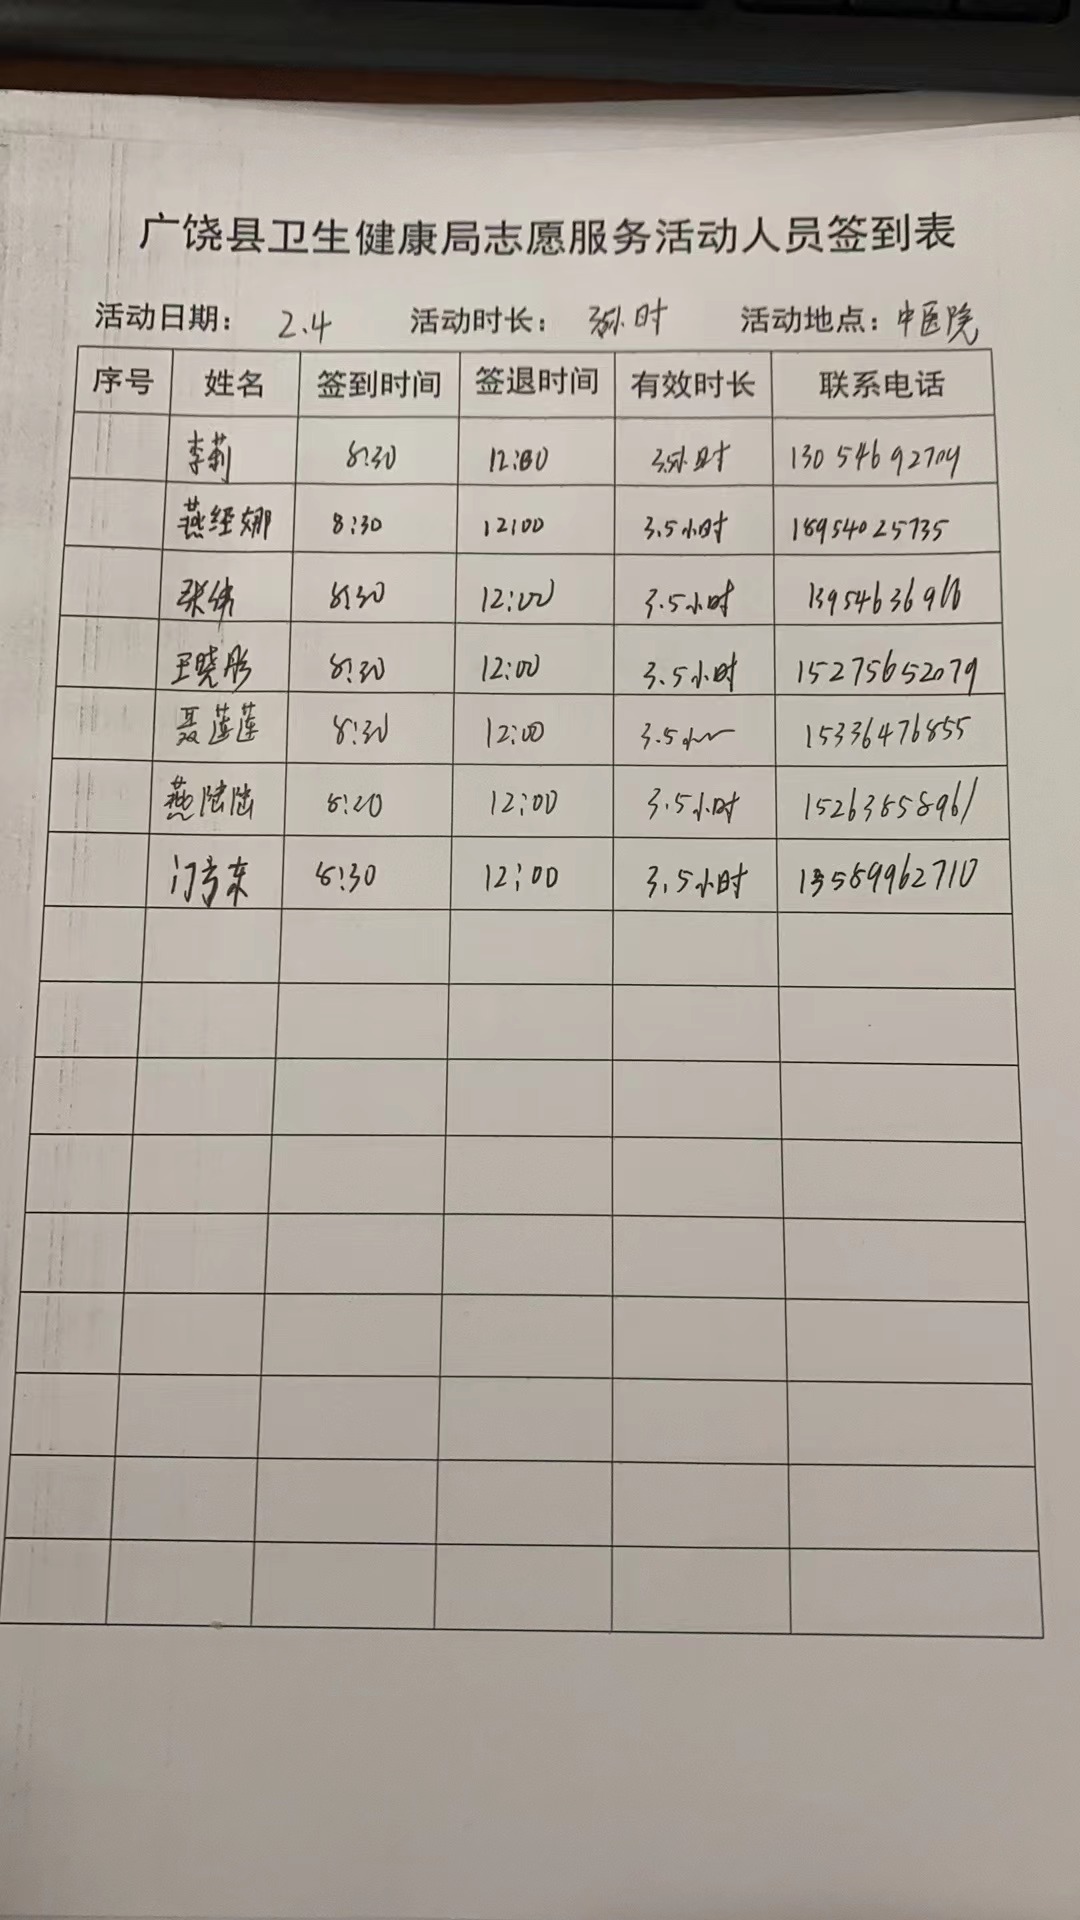 广饶县卫生健康局志愿服务活动人员签到表
活动日期： 2.4 活动时长： 3.5小时 活动地点：中医院
序号 姓名 签到时间 签退时间 有效时长 联系电话
李莉 8:30 12:00 3.5小时 13054692704
燕经娜 8:30 12:00 3.5小时 18954025735
张伟 8:30 12:00 3.5小时 139546369
王晓彤 8:30 12:00 3.5小时 15275652079
聂莲莲 8:30 12:00 3.5小 15336476855
燕陆陆 8:20 12:00 3.5小时 15263858961
门 东 8:30 12:00 3.5小时 13589962710